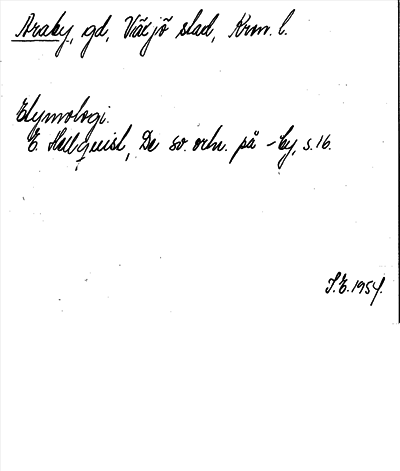 Araby, gd, Växjö stad, Kron. l.
Etymologi.
E. Hellquist, De sv. ortn. på -by, s. 16.
I.E. 1954.